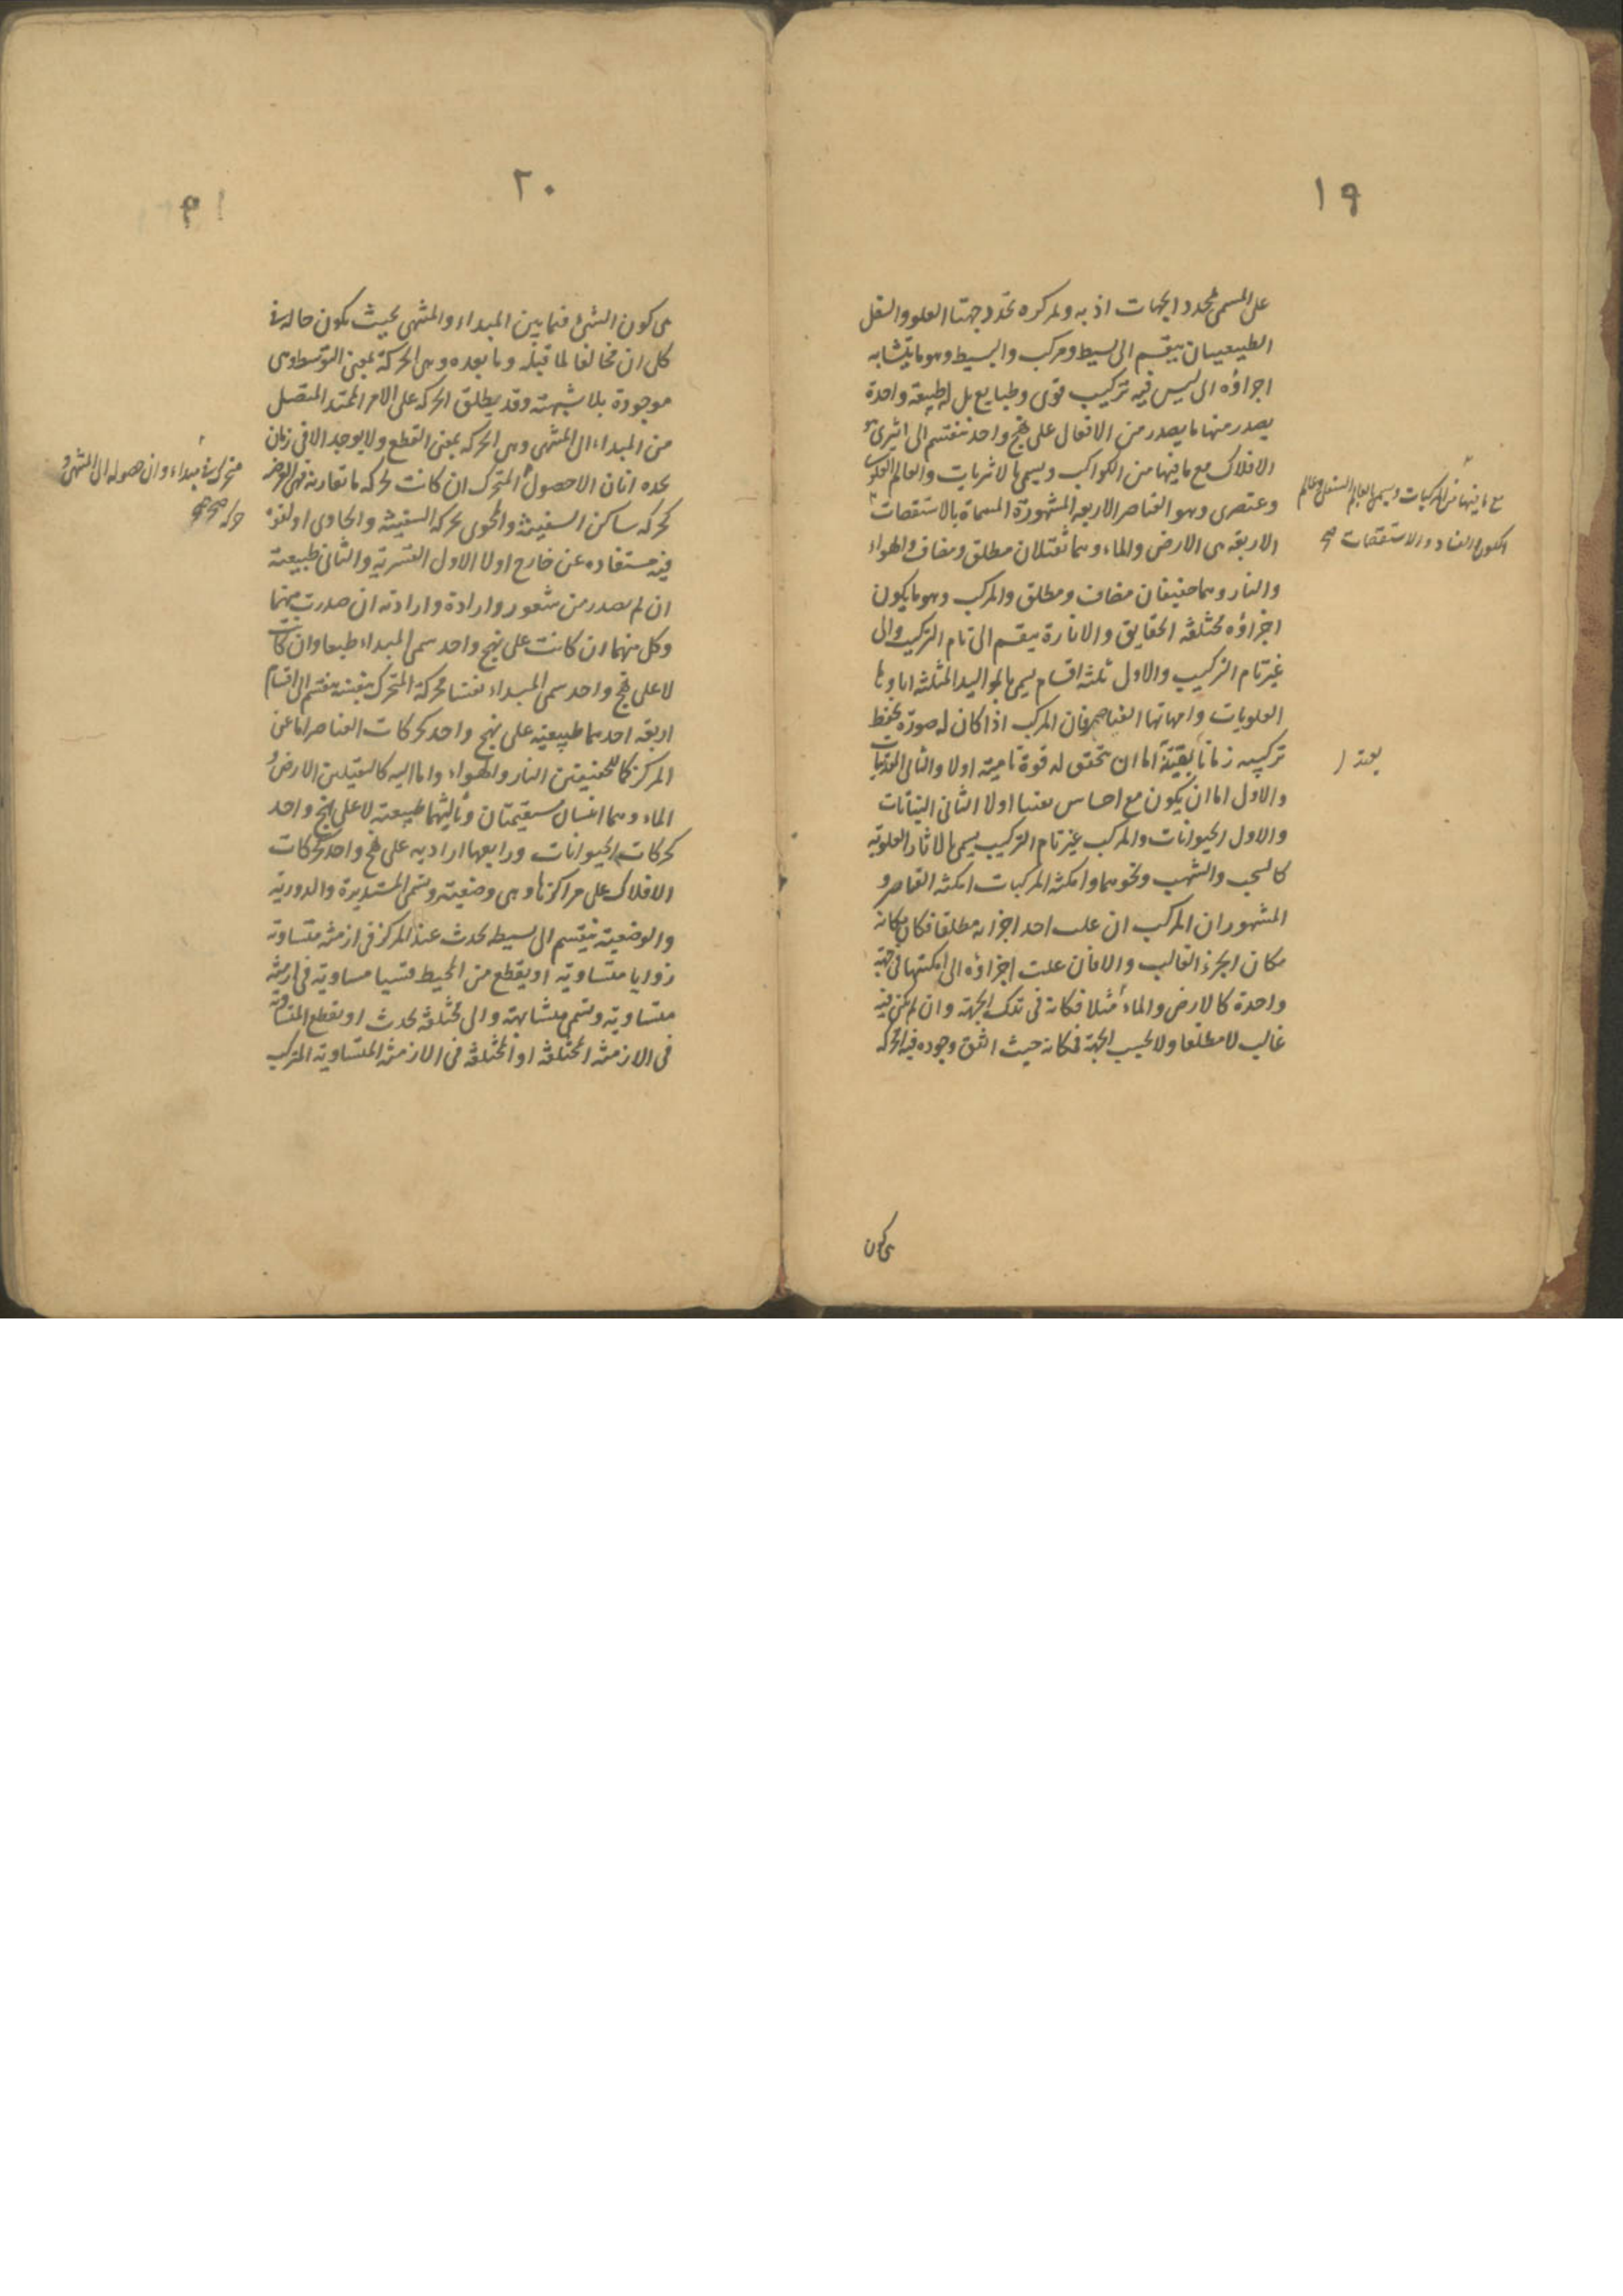 ١٩
على المسمى بمحدد الجهات اذ به ولمركزه تحدد جهتا العلو والسفل
الطبيعيان ينقسم الى بسيط ومركب والبسيط وهو ما يتشابه
اجزاؤه اى ليس فيه تركيب قوى وطبايع بل له طبيعة واحدة
يصدر منها ما يصدر من الافعال على نهج واحد ينقسم الى اثيرى هو
الافلاك مع ما فيها من الكواكب ويسمى بالاثريات والعالم العلوى
وعنصرى وهو العناصر الاربعه المشهورة المسماة بالاستقصات
مع ما فيها من المركبات ويسمى بالعالم السفلى وعالم
الكون والفساد والاستقصات صح
الاربعة هى الارض والماء وهما ثقيلان مطلق ومضاف والهواء
والنار وهما خفيفان مضاف ومطلق والمركب وهو ما يكون
اجزاؤه مختلفة الحقايق والاثارة ينقسم الى تام التركيب والى
غير تام التركيب والاول ثلثة اقسام يسمى بالمواليد الثلثة اباوها
العلويات وامهاتها العناصر فان المركب اذا كان له صورة تحفظ
تركيبه زمانا اما ان تحقق له قوة نامية اولا والثانى
يعتد
والاول اما ان يكون مع احساس اولا الثانى النباتات
والاول الحيوانات والمركب غير تام التركيب يسمى بالاثار العلوية
كالسحب والشهب ونحوهما وامكنة المركبات امكنة العناصر و
المشهور ان المركب ان غلب احد اجزائه مطلقا فكان مكانه
مكان الجزء الغالب والا فان غلبت اجزاؤه الى امكنتها فى جهة
واحدة كالارض والماء مثلا فكانه فى تلك الجهة وان لم يكن فيه
غالب لا مطلقا ولا بحسب الجهة فمكانه حيث اتفق وجوده فيه الحركة
هى كون
٢٠
هى كون الشئ فيما بين المبداء والمنتهى بحيث يكون حاله فى
كل ان مخالفا لما قبله وما بعده وهى الحركة بمعنى التوسط وهى
موجودة بلا شبهة وقد يطلق الحركه على الامر الممتد المتصل
من المبداء الى المنتهى وهى الحركه بمعنى القطع ولا يوجد الا فى زمان
يحده انان الا حصول المتحرك ان كانت لحركه ما تقارنه فهى العرض
فى مبداء وان حصوله الى المنتهى و
كحركه ساكن السفينة والمحوى بحركه السفينة والحاوى او لقوة
فيه مستفاده عن خارج اولا الاول القسرية والثانى طبيعية
ان لم يصدر من شعور وارادة وارادته ان صدرت منهما
وكل منهما ان كانت على نهج واحد سمى المبداء طبعا وان كانت
لا على نهج واحد سمى المبداء نفسا فحركة المتحرك بنفسه ينقسم الى اقسام
اربعه احدهما طبيعية على نهج واحد كحركات العناصر اما عن
المركز كالخفيفين النار والهواء واما اليه كالثقيلين الارض و
الماء وهما مستقيمتان وثانيهما طبيعته لا على نهج واحد
كحركات الحيوانات ورابعها اراديه على نهج واحد كحركات
الافلاك على مراكزها وهى وضعية وتسمى المستديرة والدورية
والوضعية ينقسم الى بسيط يحدث عند المركز فى ازمنة متساوية
زوايا متساوية او يقطع من المحيط قسيا مساوية فى ازمنة
متساوية وتسمى متشابهة والى مختلفة يحدث او يقطع المتساوية
فى الازمنة المختلفة او المختلفة فى الازمنة المتساوية المركب